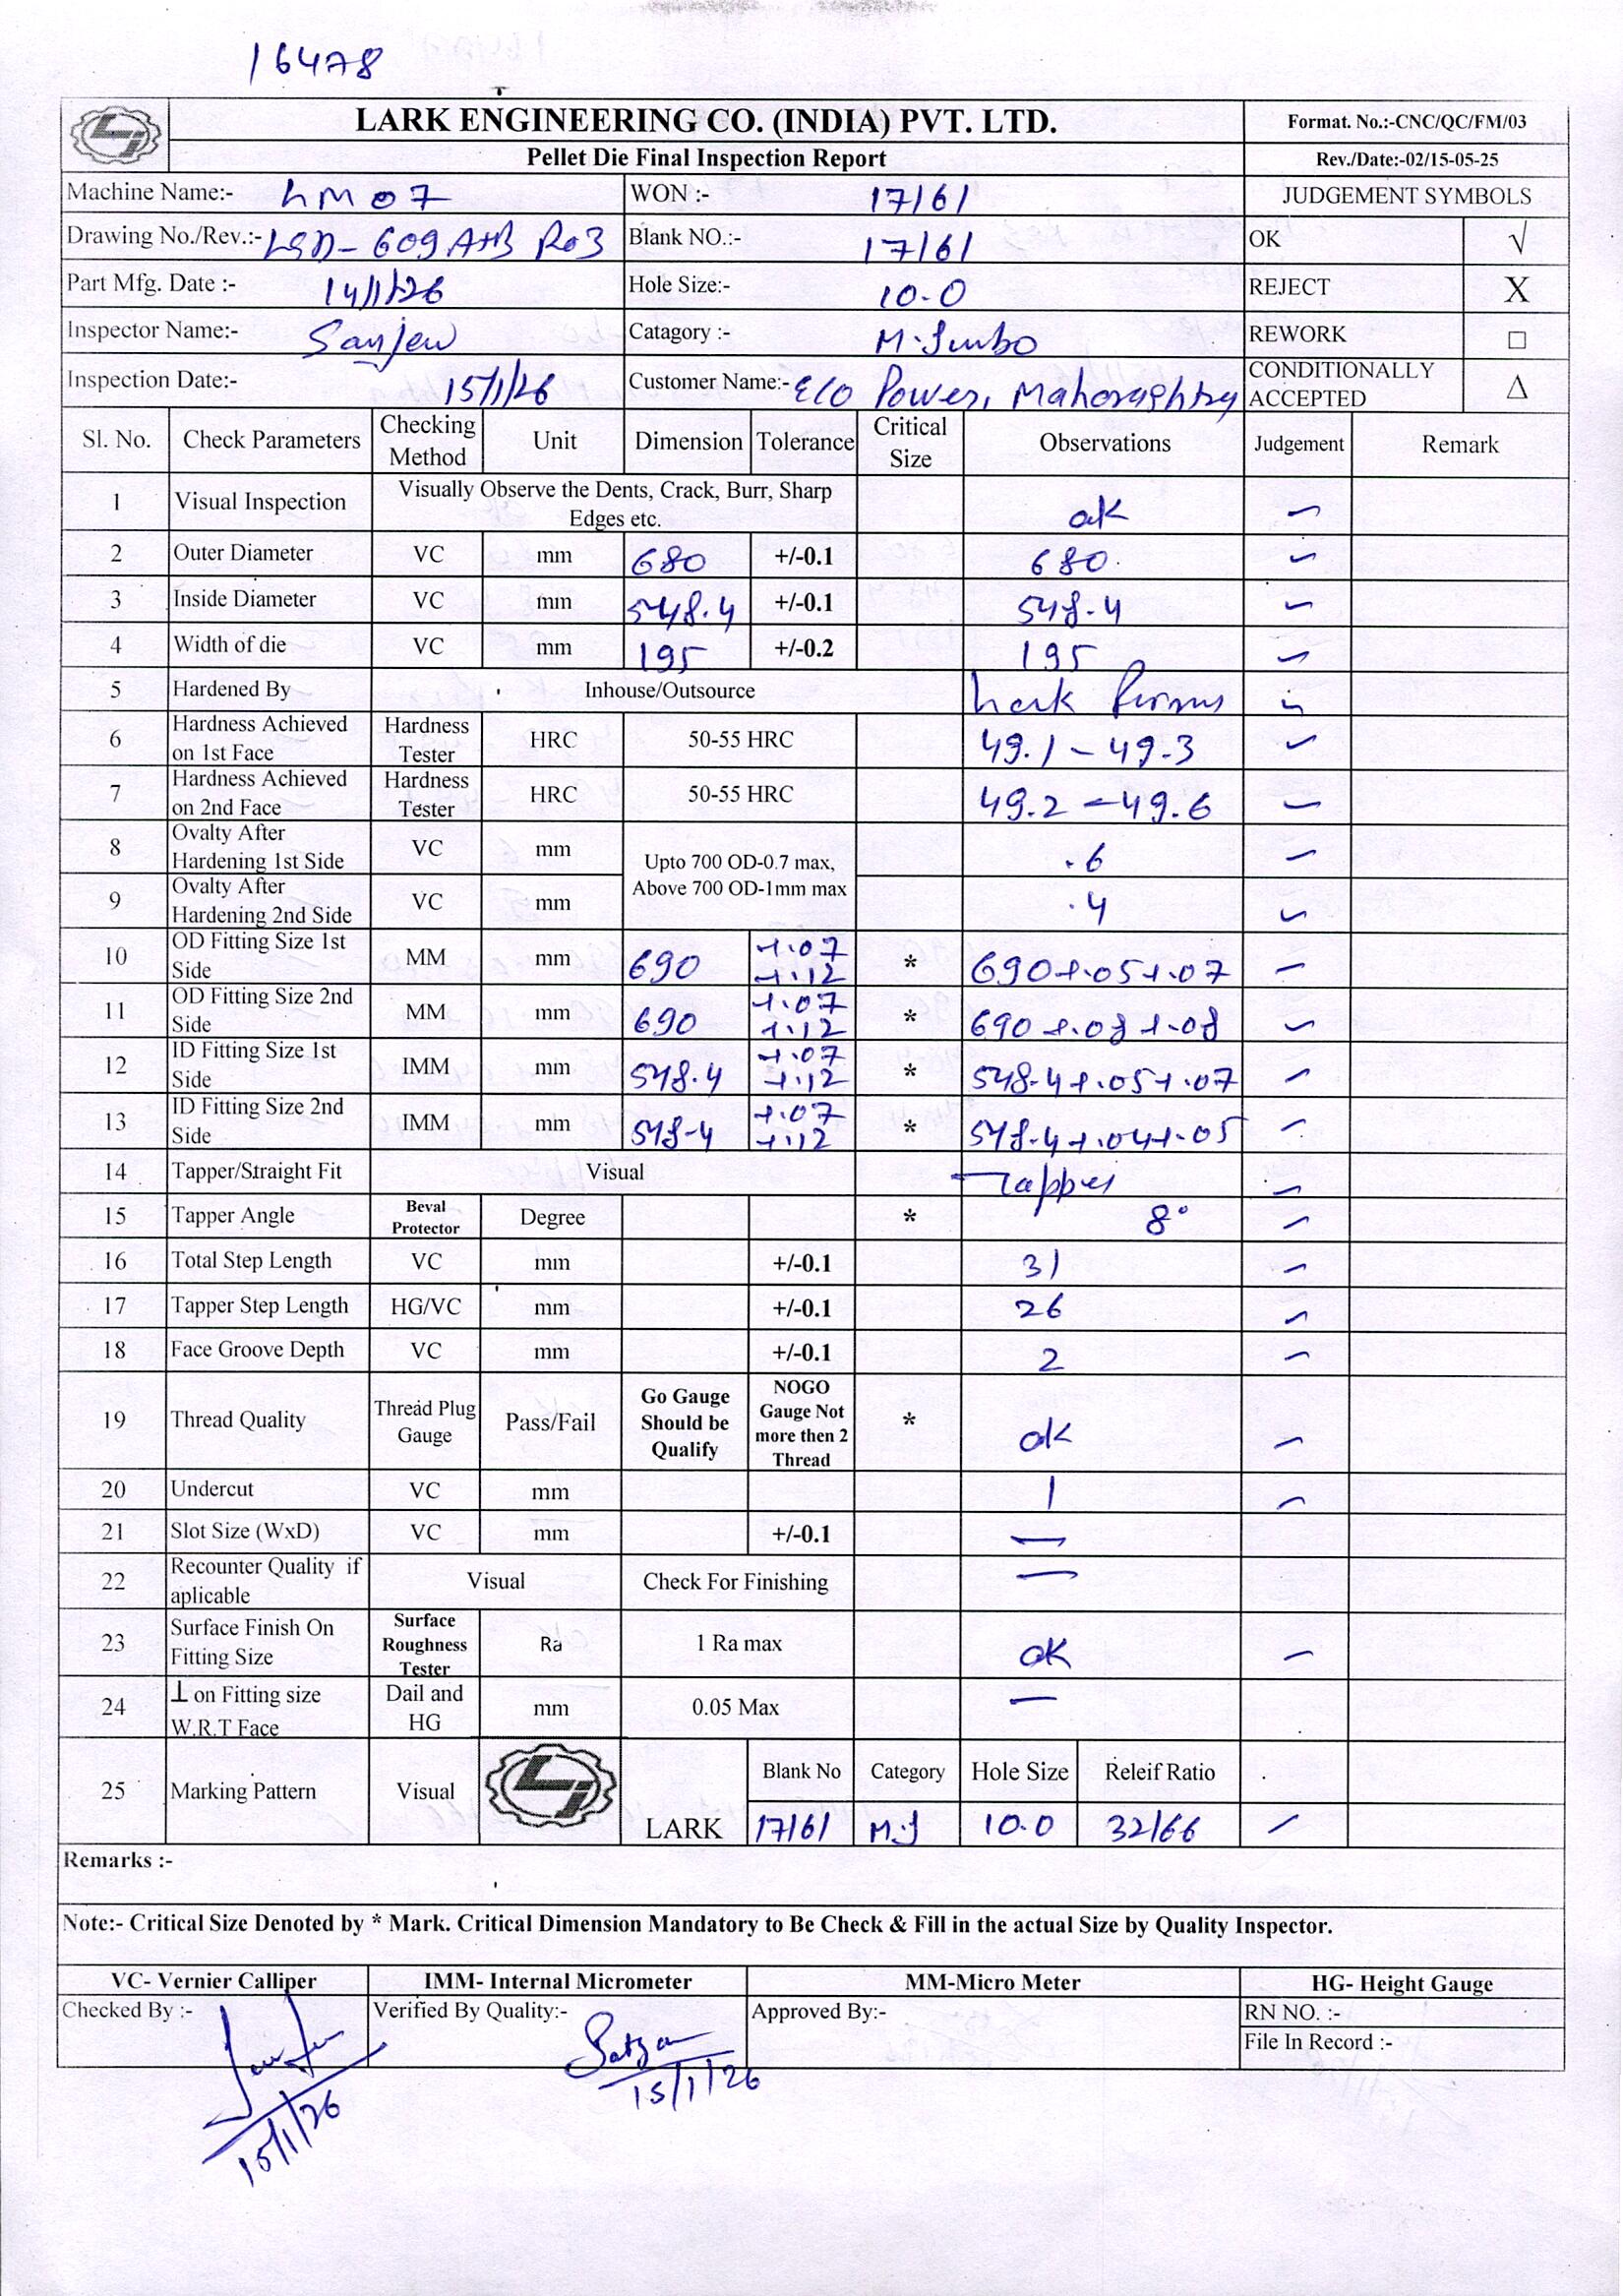 16478
LARK ENGINEERING CO. (INDIA) PVT. LTD.
Format. No.:-CNC/QC/FM/03
Pellet Die Final Inspection Report
Rev./Date:-02/15-05-25
Machine Name:- LM 07 WON :- 17161 JUDGEMENT SYMBOLS
Drawing No./Rev.:- LSD-609 A+B R03 Blank NO.:- 17161 OK √
Part Mfg. Date :- 14/1/26 Hole Size:- 10.0 REJECT X
Inspector Name:- Sanjeev Catagory :- M.Jumbo REWORK □
Inspection Date:- 15/1/26 Customer Name:- E/O Power, Maharashtra CONDITIONALLY ACCEPTED Δ
Sl. No. Check Parameters Checking Method Unit Dimension Tolerance Critical Size Observations Judgement Remark
1 Visual Inspection Visually Observe the Dents, Crack, Burr, Sharp Edges etc. ok
2 Outer Diameter VC mm 680 +/-0.1 680
3 Inside Diameter VC mm 548.4 +/-0.1 548.4
4 Width of die VC mm 195 +/-0.2 195
5 Hardened By Inhouse/Outsource Lark
6 Hardness Achieved on 1st Face Hardness Tester HRC 50-55 HRC 49.1 - 49.3
7 Hardness Achieved on 2nd Face Hardness Tester HRC 50-55 HRC 49.2 - 49.6
8 Ovalty After Hardening 1st Side VC mm Upto 700 OD-0.7 max, Above 700 OD-1mm max .6
9 Ovalty After Hardening 2nd Side VC mm .4
10 OD Fitting Size 1st Side MM mm 690 +.07 +.12 * 690+.05+.07
11 OD Fitting Size 2nd Side MM mm 690 +.07 +.12 * 690 +.08 +.08
12 ID Fitting Size 1st Side IMM mm 548.4 +.07 +.12 * 548.4+.05+.07
13 ID Fitting Size 2nd Side IMM mm 548.4 +.07 +.12 * 548.4+.04+.05
14 Tapper/Straight Fit Visual Tapper
15 Tapper Angle Beval Protector Degree * 8°
16 Total Step Length VC mm +/-0.1 31
17 Tapper Step Length HG/VC mm +/-0.1 26
18 Face Groove Depth VC mm +/-0.1 2
19 Thread Quality Thread Plug Gauge Pass/Fail Go Gauge Should be Qualify NOGO Gauge Not more then 2 Thread * ok
20 Undercut VC mm 1
21 Slot Size (WxD) VC mm +/-0.1 —
22 Recounter Quality if aplicable Visual Check For Finishing —
23 Surface Finish On Fitting Size Surface Roughness Tester Ra 1 Ra max ok
24 ⊥ on Fitting size W.R.T Face Dail and HG mm 0.05 Max —
25 Marking Pattern Visual LARK Blank No Category Hole Size Releif Ratio
17161 M.J 10.0 32/66
Remarks :-
Note:- Critical Size Denoted by * Mark. Critical Dimension Mandatory to Be Check & Fill in the actual Size by Quality Inspector.
VC- Vernier Calliper IMM- Internal Micrometer MM-Micro Meter HG- Height Gauge
Checked By :- Verified By Quality:- Approved By:- RN NO. :-
File In Record :-
15/1/26
15/1/26